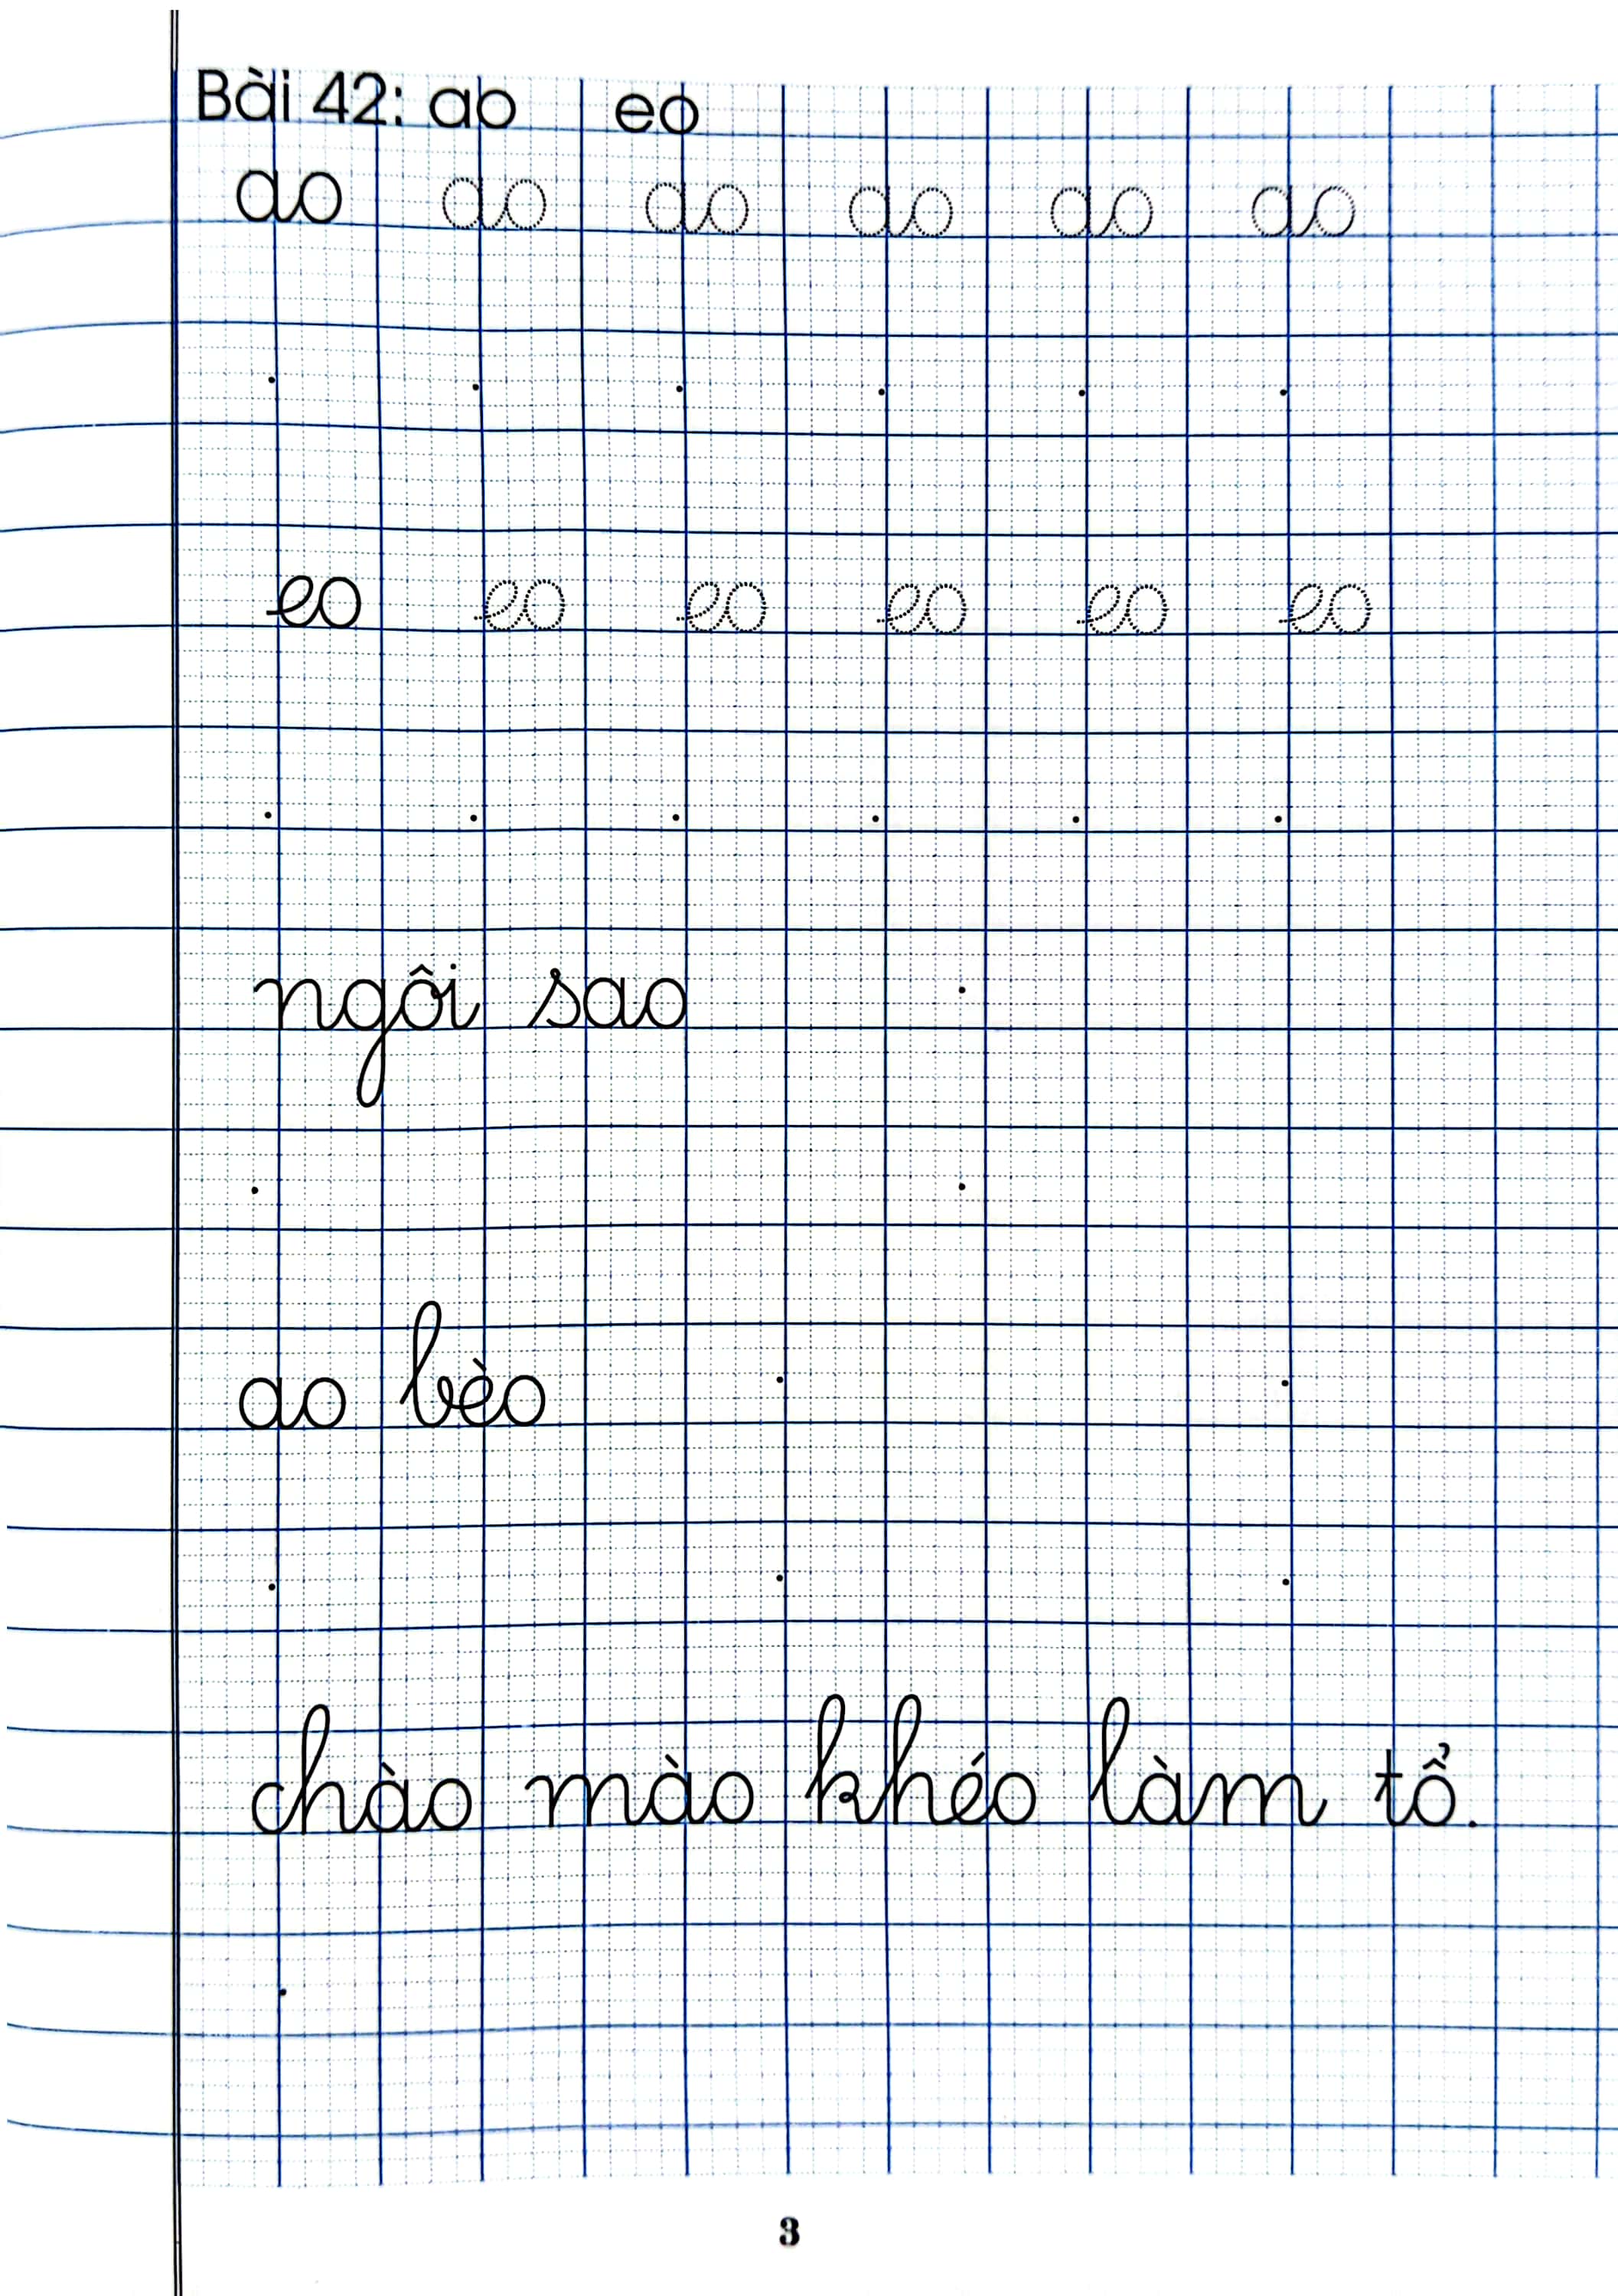 Bài 42: ao eo
ao ao ao ao ao ao
eo eo eo eo eo eo
ngôi sao
ao bèo
chào mào khéo làm tổ.
3